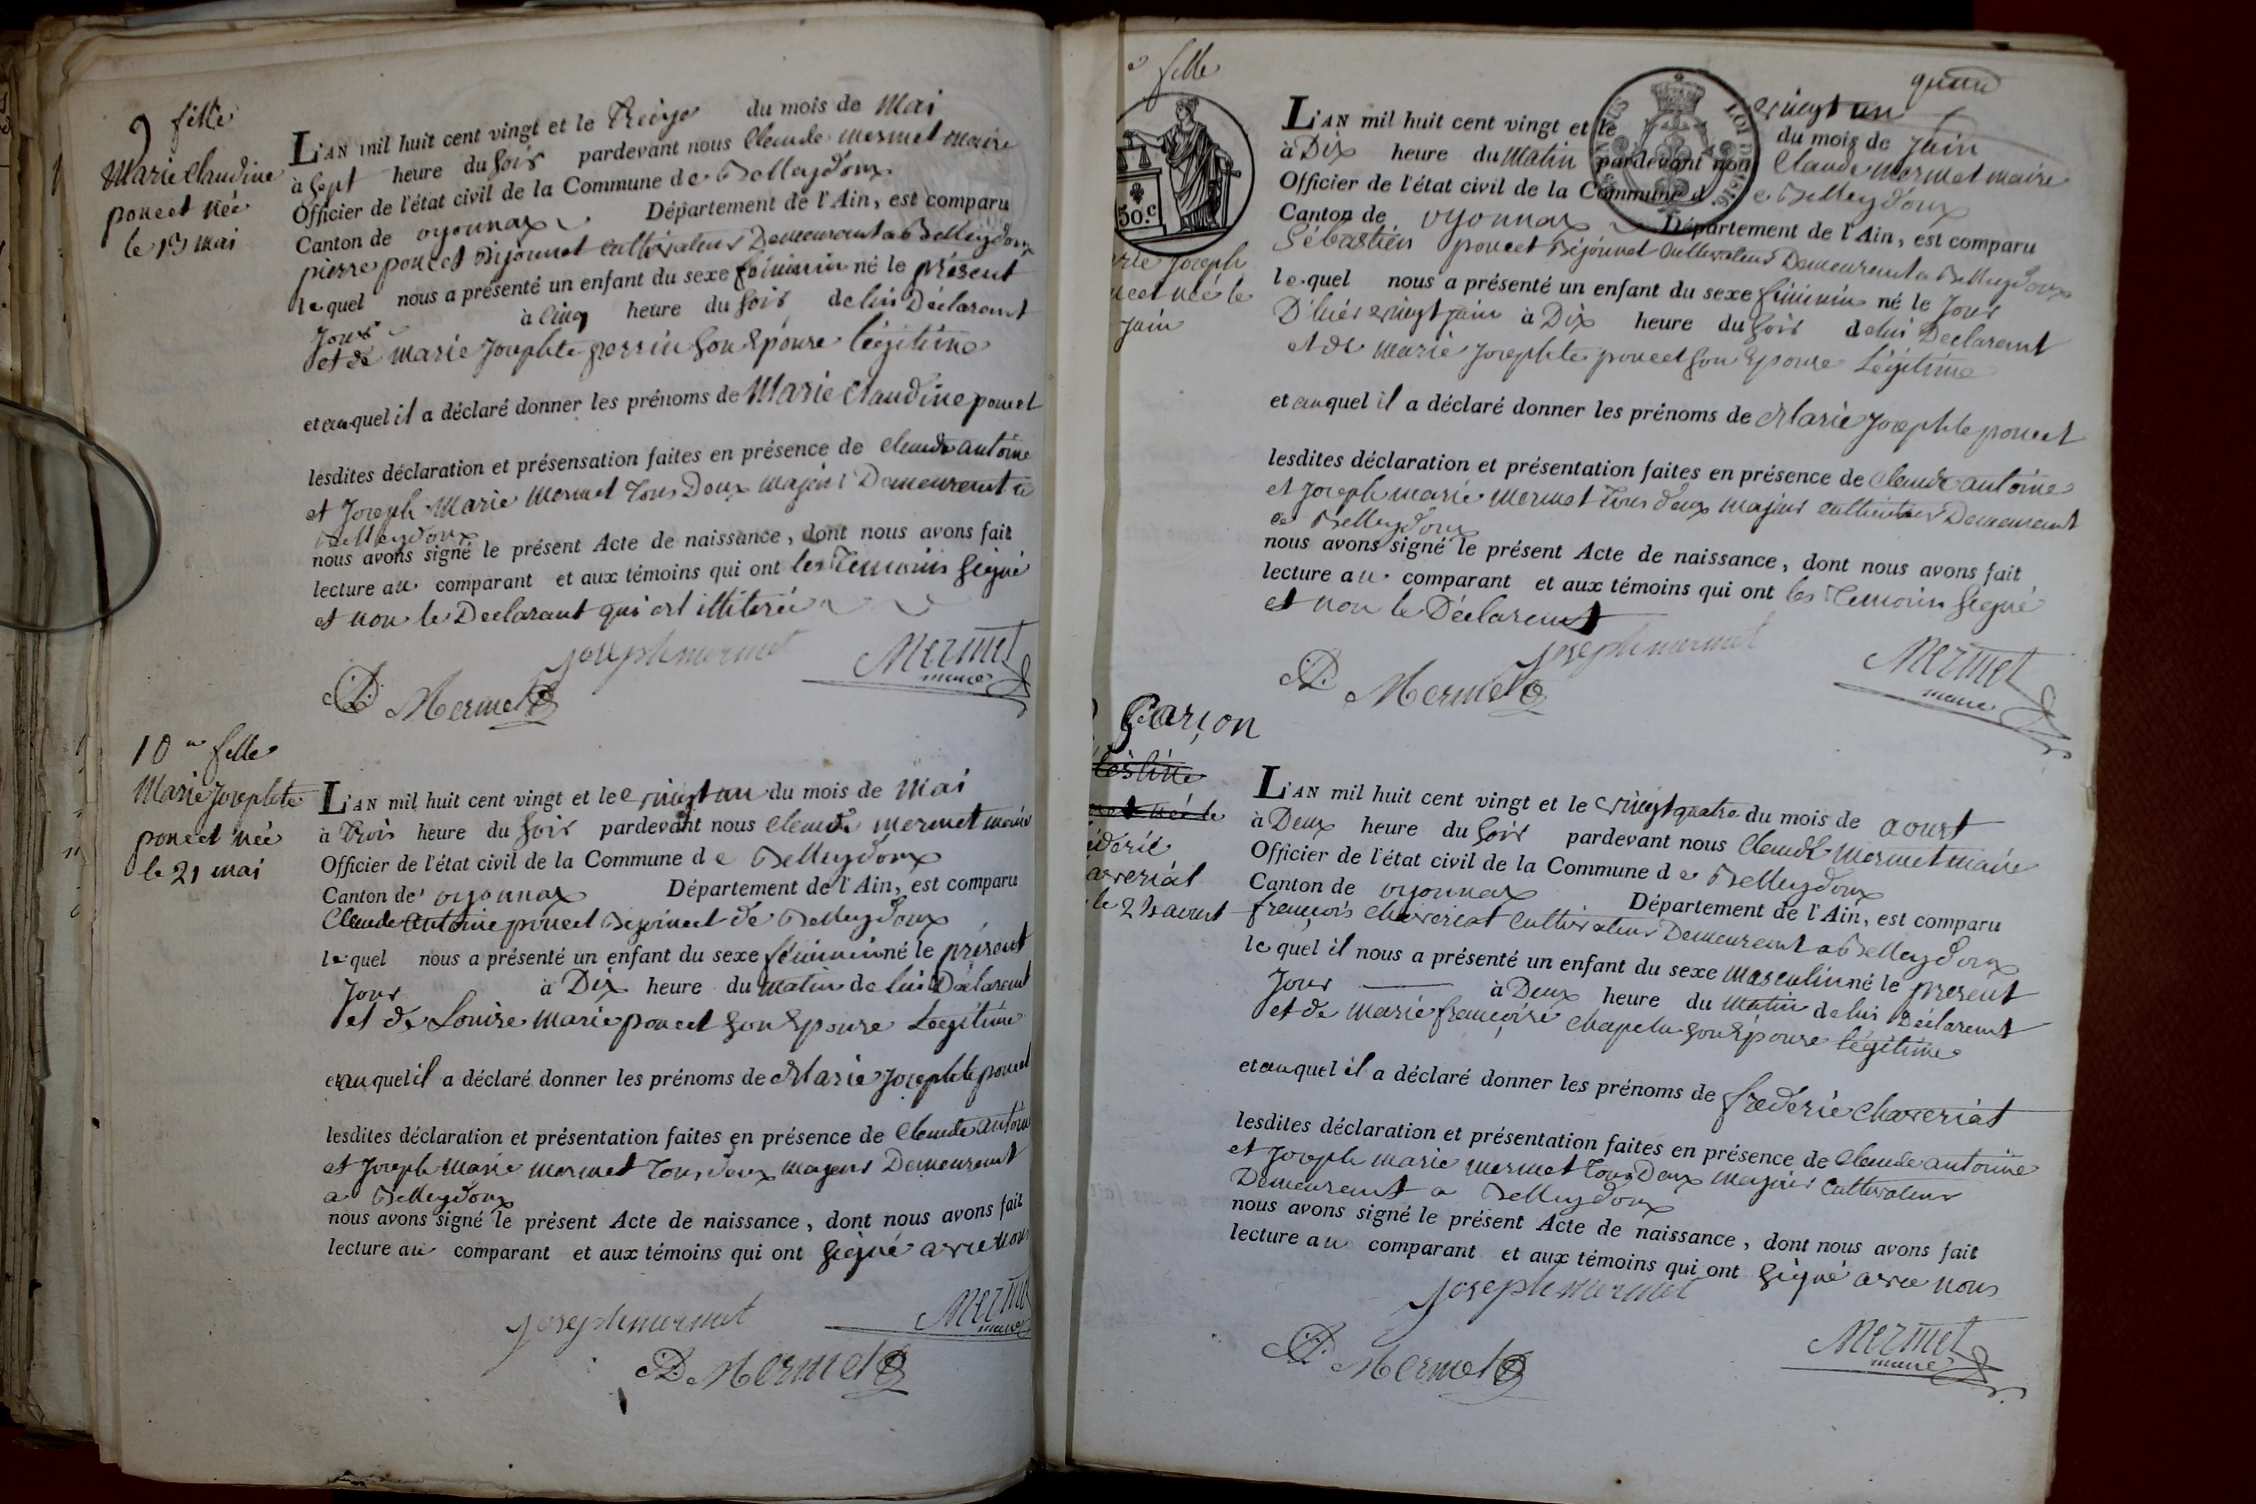 9 fille
Marie Claudine
poncet née
le 13 mai
L'AN mil huit cent vingt et le Treize du mois de Mai
à Sept heure du Soir pardevant nous Claude mermet maire
Officier de l'état civil de la Commune de Belleydoux
Canton de oyonnax Département de l'Ain, est comparu
pierre poncet Bijonnet cultivateur Demeurant a Belleydoux
lequel nous a présenté un enfant du sexe féminin né le présent
Jour à Cinq heure du Soir de lui Déclarant
et de marie Josephte perrin Son Epouse légitime
et auquel il a déclaré donner les prénoms de Marie Claudine poncet
lesdites déclaration et présensation faites en présence de claude antoine
et Joseph Marie Mermet Tous Deux majeurs Demeurant a
Belleydoux
nous avons signé le présent Acte de naissance, dont nous avons fait
lecture au comparant et aux témoins qui ont les Temoins Signé
et non le Declarant qui est illitéré
Joseph mermet
Mermet
maire
Mermet
10e fille
Marie Josephte
poncet née
le 21 mai
L'AN mil huit cent vingt et le vingt un du mois de Mai
à Trois heure du Soir pardevant nous claude mermet maire
Officier de l'état civil de la Commune de Belleydoux
Canton de oyonnax Département de l'Ain, est comparu
Claude antoine poncet Bijonnet de Belleydoux
lequel nous a présenté un enfant du sexe féminin né le présent
Jour à Dix heure du matin de lui Déclarant
et de Louise marie poncet Son Epouse Légitime
et auquel il a déclaré donner les prénoms de Marie Josephte poncet
lesdites déclaration et présentation faites en présence de claude antoine
et Joseph Marie mermet Tous deux majeurs Demeurant
a Belleydoux
nous avons signé le présent Acte de naissance, dont nous avons fait
lecture au comparant et aux témoins qui ont Signé avec nous
Joseph mermet
Mermet
maire
Mermet
fille
50.c
Joseph
née le
juin
quatre
L'AN mil huit cent vingt et le vingt un du mois de Juin
à Dix heure du Matin pardevant nous Claude Mermet maire
Officier de l'état civil de la Commune de Belleydoux
Canton de oyonnax Département de l'Ain, est comparu
Sébastien poncet Bijonnet Cultivateur Demeurant a Belleydoux
lequel nous a présenté un enfant du sexe féminin né le Jour
D'hier vingt juin à Dix heure du Soir de lui Declarant
et de marie Josephte poncet Son Epouse Légitime
et auquel il a déclaré donner les prénoms de Marie Josephte poncet
lesdites déclaration et présentation faites en présence de Claude antoine
et Joseph marie mermet Tous deux majeurs cultivateurs Demeurant
a Belleydoux
nous avons signé le présent Acte de naissance, dont nous avons fait
lecture au comparant et aux témoins qui ont les Temoins Signé
et non le Déclarant
Joseph mermet
Mermet
maire
Mermet
Garçon
le 24 aoust
L'AN mil huit cent vingt et le vingt quatre du mois de aoust
à Deux heure du Soir pardevant nous Claude Mermet maire
Officier de l'état civil de la Commune de Belleydoux
Canton de oyonnax Département de l'Ain, est comparu
françois chaveriat Cultivateur Demeurant a Belleydoux
lequel il nous a présenté un enfant du sexe masculin né le présent
Jour à Deux heure du Matin de lui Déclarant
et de marie françoise chapelu Son Epouse légitime
et auquel il a déclaré donner les prénoms de fréderic chaveriat
lesdites déclaration et présentation faites en présence de Claude antoine
et Joseph marie mermet Tous Deux majeurs Cultivateurs
Demeurant a Belleydoux
nous avons signé le présent Acte de naissance, dont nous avons fait
lecture au comparant et aux témoins qui ont Signé avec nous
Joseph mermet
Mermet
maire
Mermet